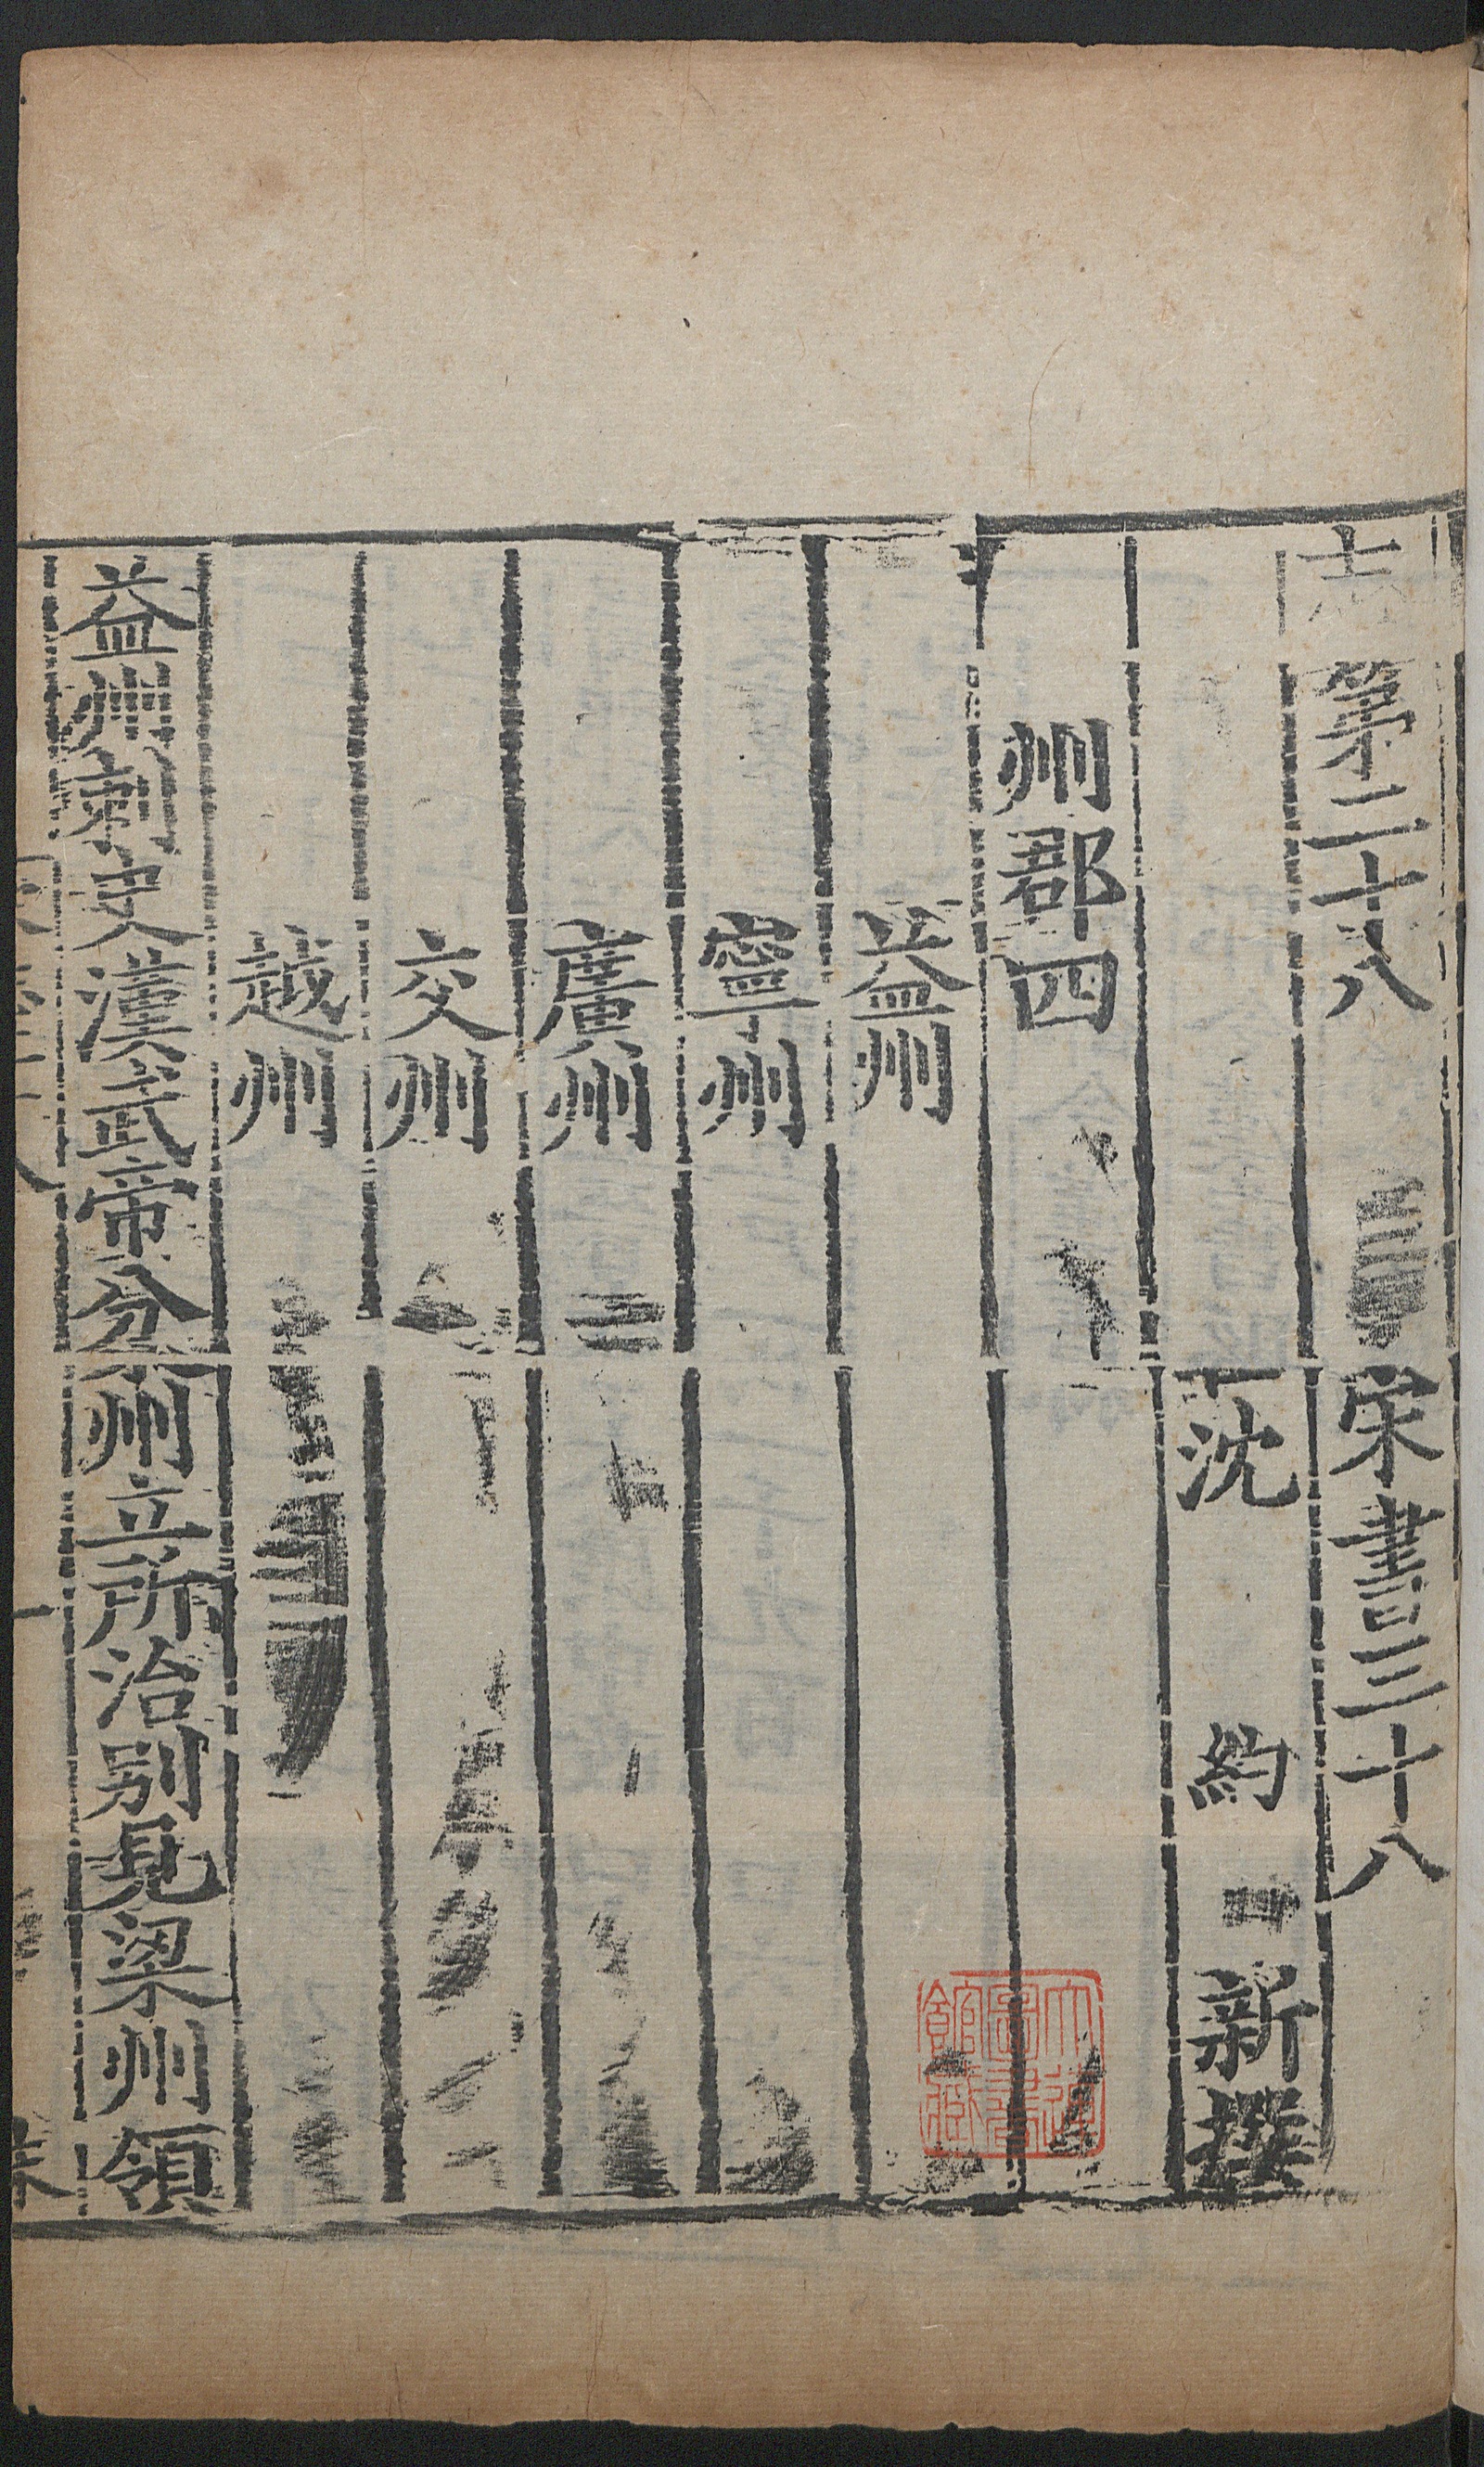 志第二十八 宋書三十八
沈 約 新撰
州郡四
益州
寧州
廣州
交州
越州
益州刺史漢武帝分梁州立所治別見梁州領
大連圖書館藏